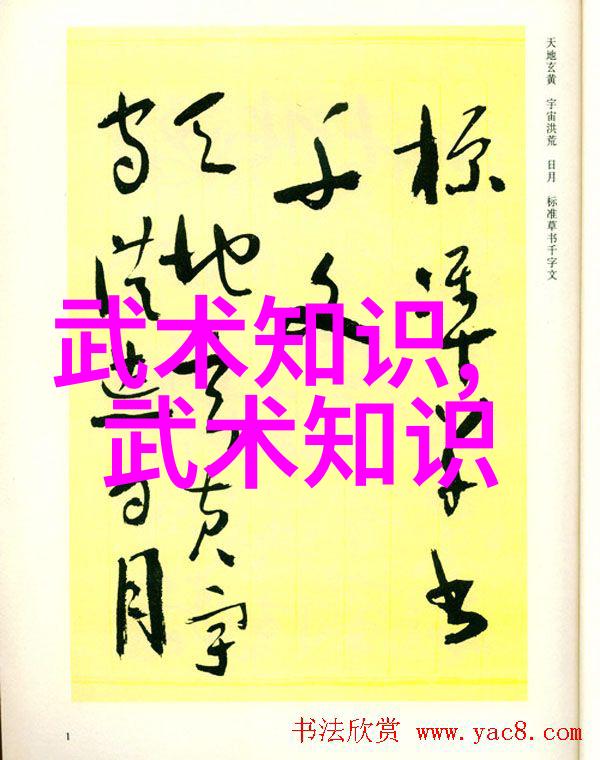 天地玄黄 宇宙洪荒 日月 标准草书千字文
标准草书
千文
天地玄黄宇
宙洪荒日月
武术知识,
武术知识
1
书法欣赏 www.yac8.com